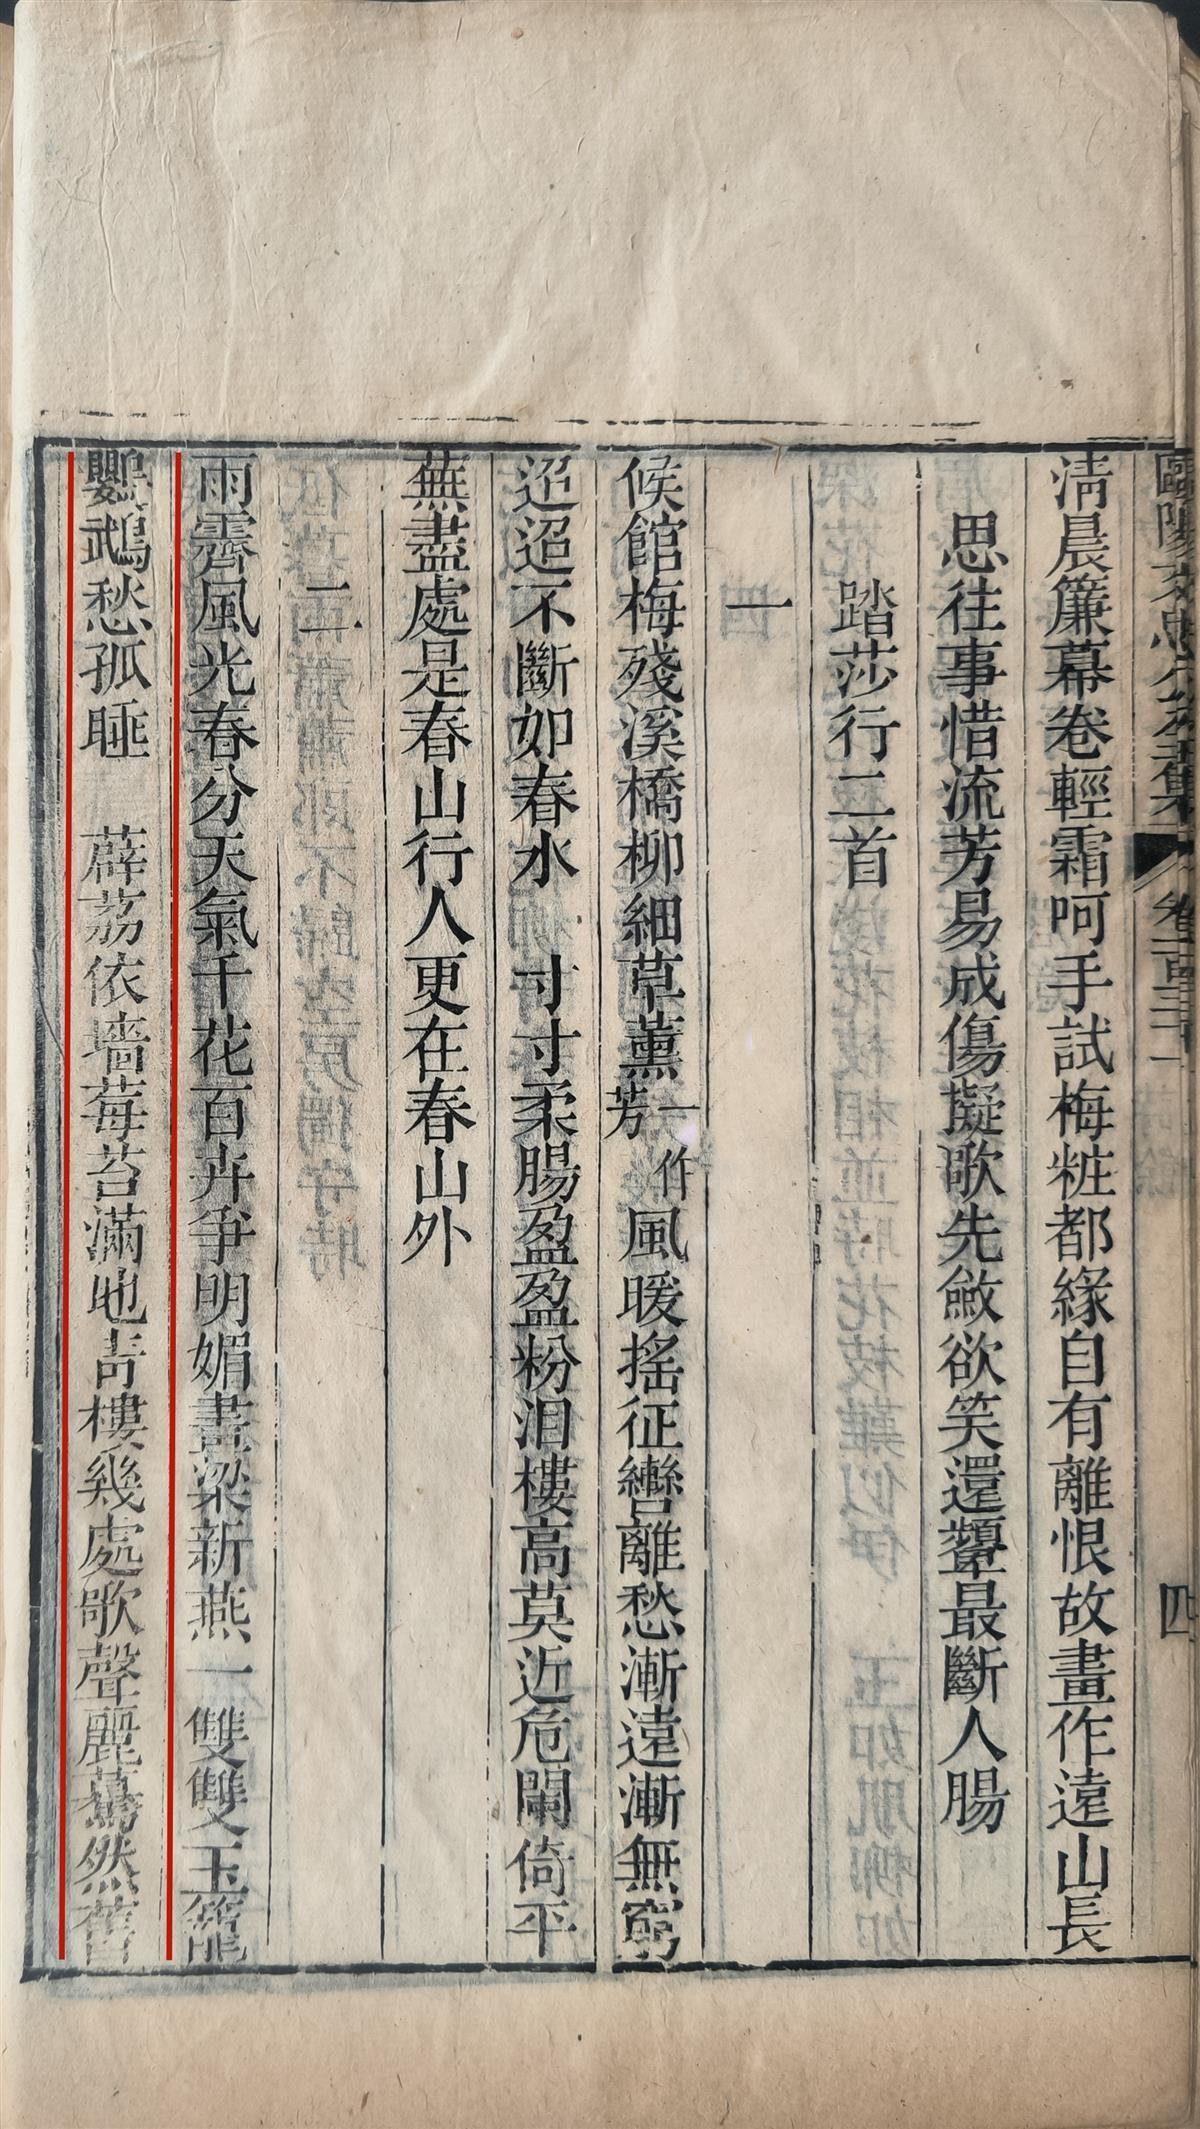 歐陽文忠公集 卷一百三十一 四
清晨簾幕卷輕霜呵手試梅粧都緣自有離恨故畫作遠山長
思往事惜流芳易成傷擬歌先斂欲笑還顰最斷人腸
踏莎行二首
一
候館梅殘溪橋柳細草薰一作芳風暖搖征轡離愁漸遠漸無窮
迢迢不斷如春水 寸寸柔腸盈盈粉淚樓高莫近危闌倚平
蕪盡處是春山行人更在春山外
二
雨霽風光春分天氣千花百卉爭明媚畫梁新燕一雙雙玉籠
鸚鵡愁孤睡 薜荔依墻莓苔滿地青樓幾處歌聲麗驀然舊